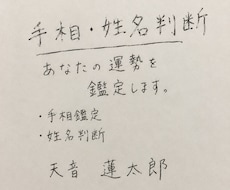 手相・姓名判断
あなたの運勢を
鑑定します。
・手相鑑定
・姓名判断
天音 蓮太郎